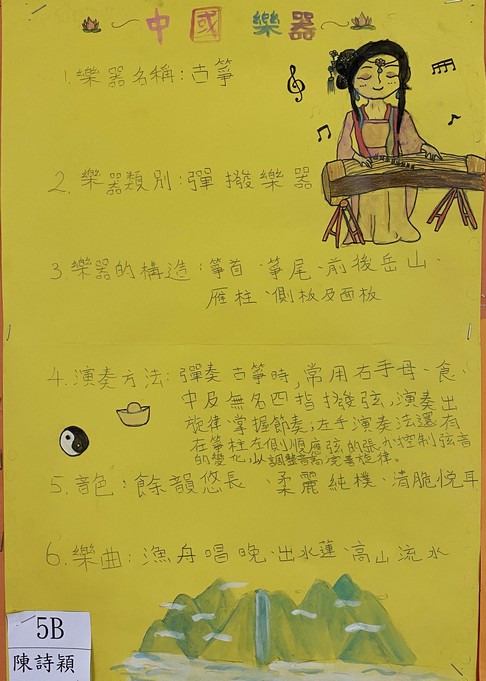 中國樂器
1. 樂器名稱:古箏
2. 樂器類別:彈撥樂器
3. 樂器的構造:箏首、箏尾、前後岳山、
雁柱、側板及面板
4. 演奏方法:彈奏古箏時,常用右手母、食、
中及無名四指撥弦,演奏出
旋律、掌握節奏;左手演奏法還有
在箏柱左側順應弦的張力控制弦音
的變化,以調整音高完善旋律。
5. 音色:餘韻悠長、柔麗純樸、清脆悅耳
6. 樂曲:漁舟唱晚、出水蓮、高山流水
5B
陳詩穎